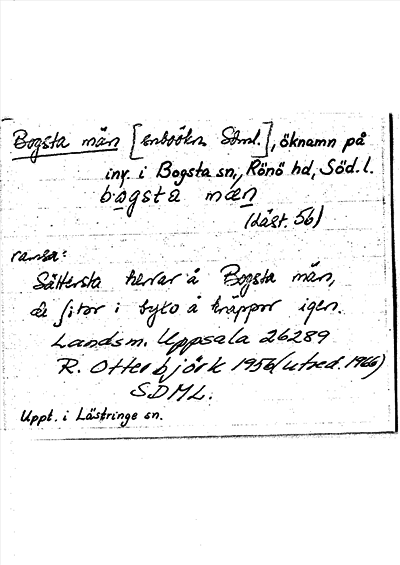 Bogsta män [inbökn. Söml.], öknamn på
inv. i Bogsta sn, Rönö hd, Söd.l.
bogsta mæn
(Läst. 56)
ramsa:
Sättersta herrar å Bogsta män,
de i byko å träppor igen.
Landsm. Uppsala 26289
R. Otterbjörk 1956 (utred. 1966)
SDML.
Uppt. i Lästringe sn.